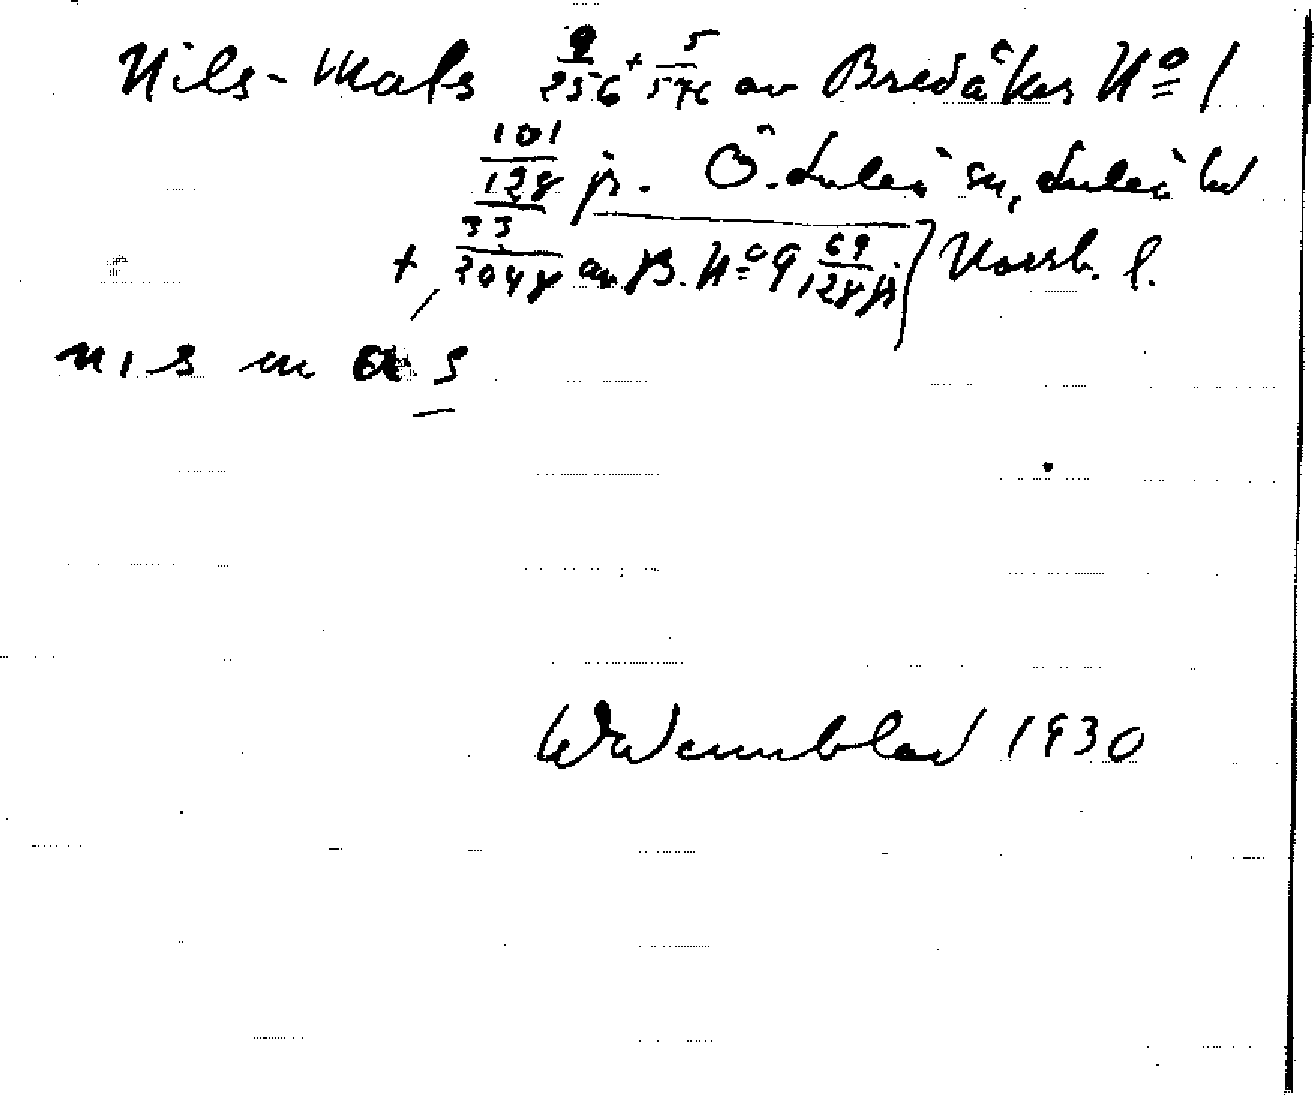 Nils-Mats 9/256 + 5/576 av Bredåker Nº 1
101/128 jr. Ö. Luleå sn, Luleå hd
+ 33/2048 av B. Nº 9 69/128 jr Norrb. l.
n i s m a s
W Wennblad 1930